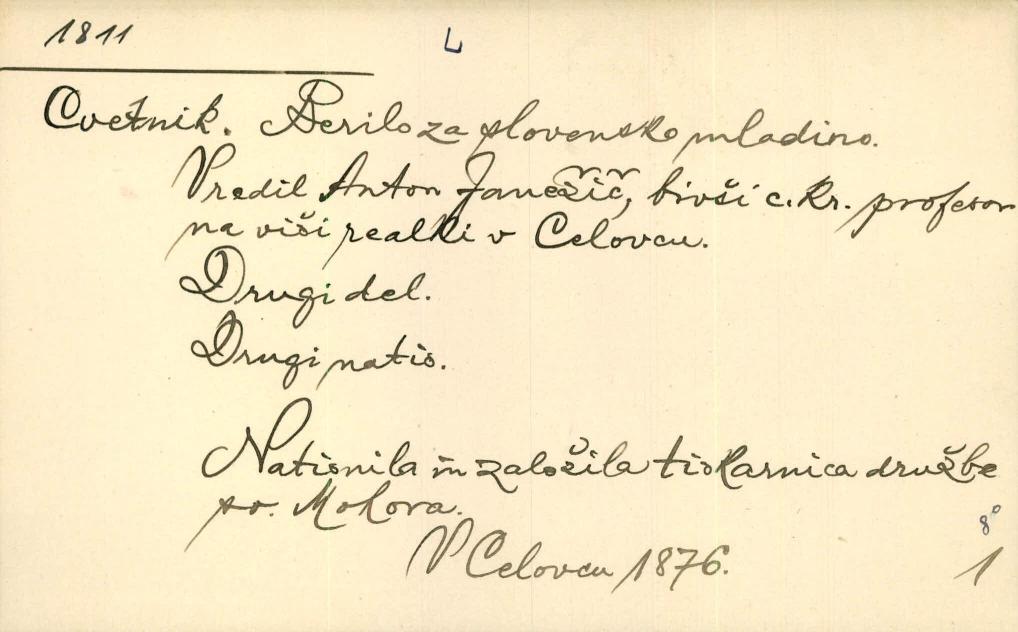 1811
L
Cvetnik. Berilo za slovensko mladino.
Vredil Anton Janežič, bivši c. kr. profesor
na viši realki v Celovcu.
Drugi del.
Drugi natis.
Natisnila in založila tiskarnica družbe
sv. Mohora.
8°
V Celovcu 1876.
1